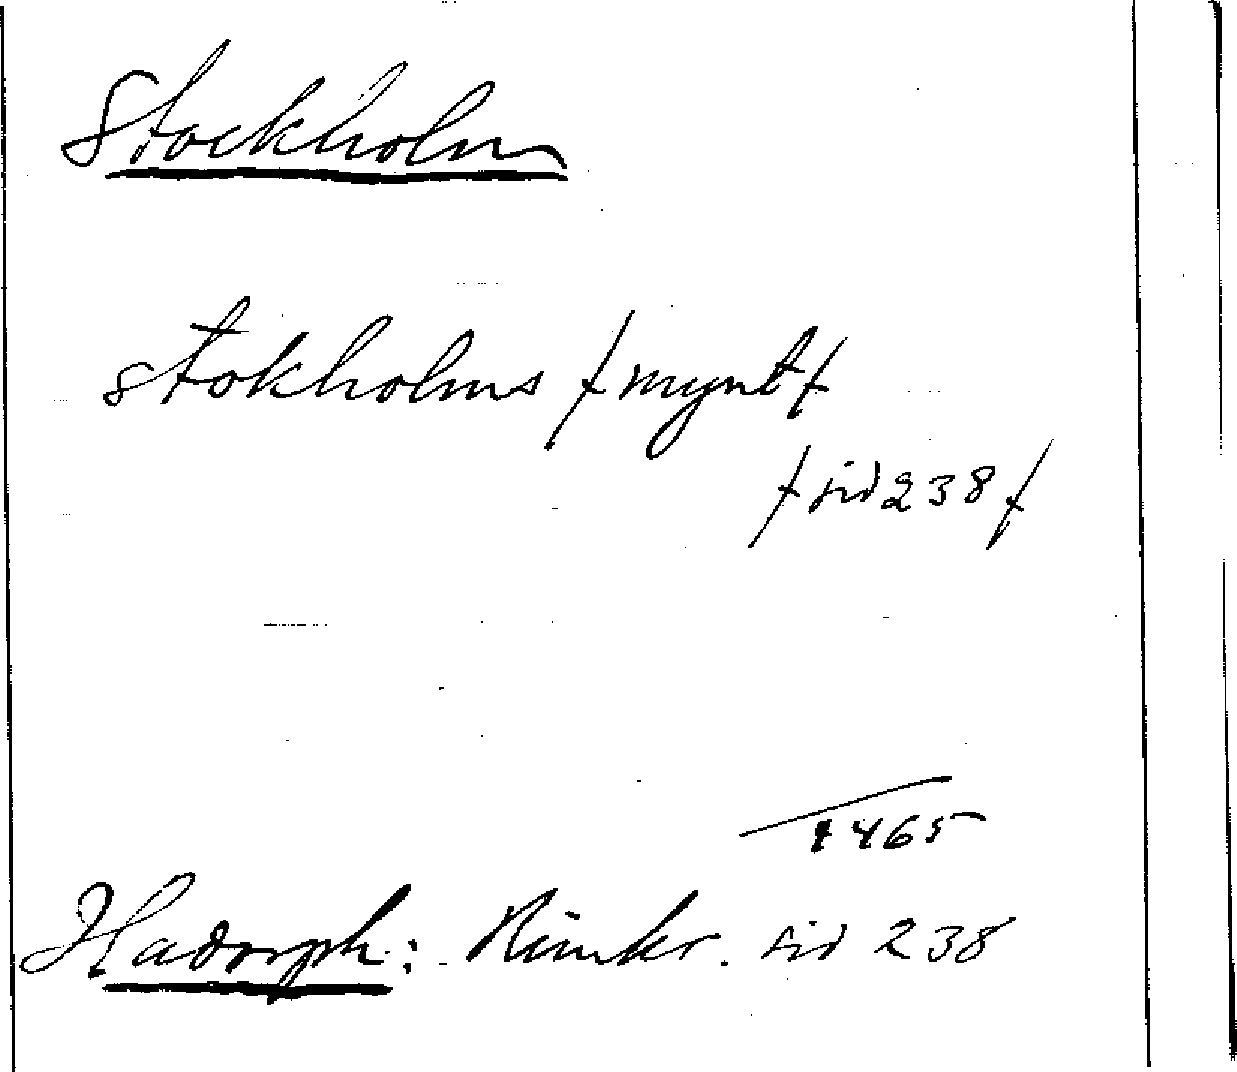 Stockholm
stokholms /mynt/
/sid 238/
1465
Hadorph: Rimkr. sid 238